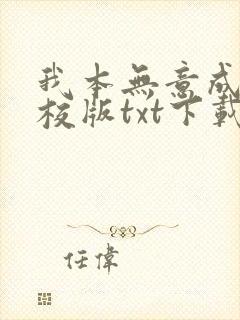 我本無意成
校版txt下載
任偉